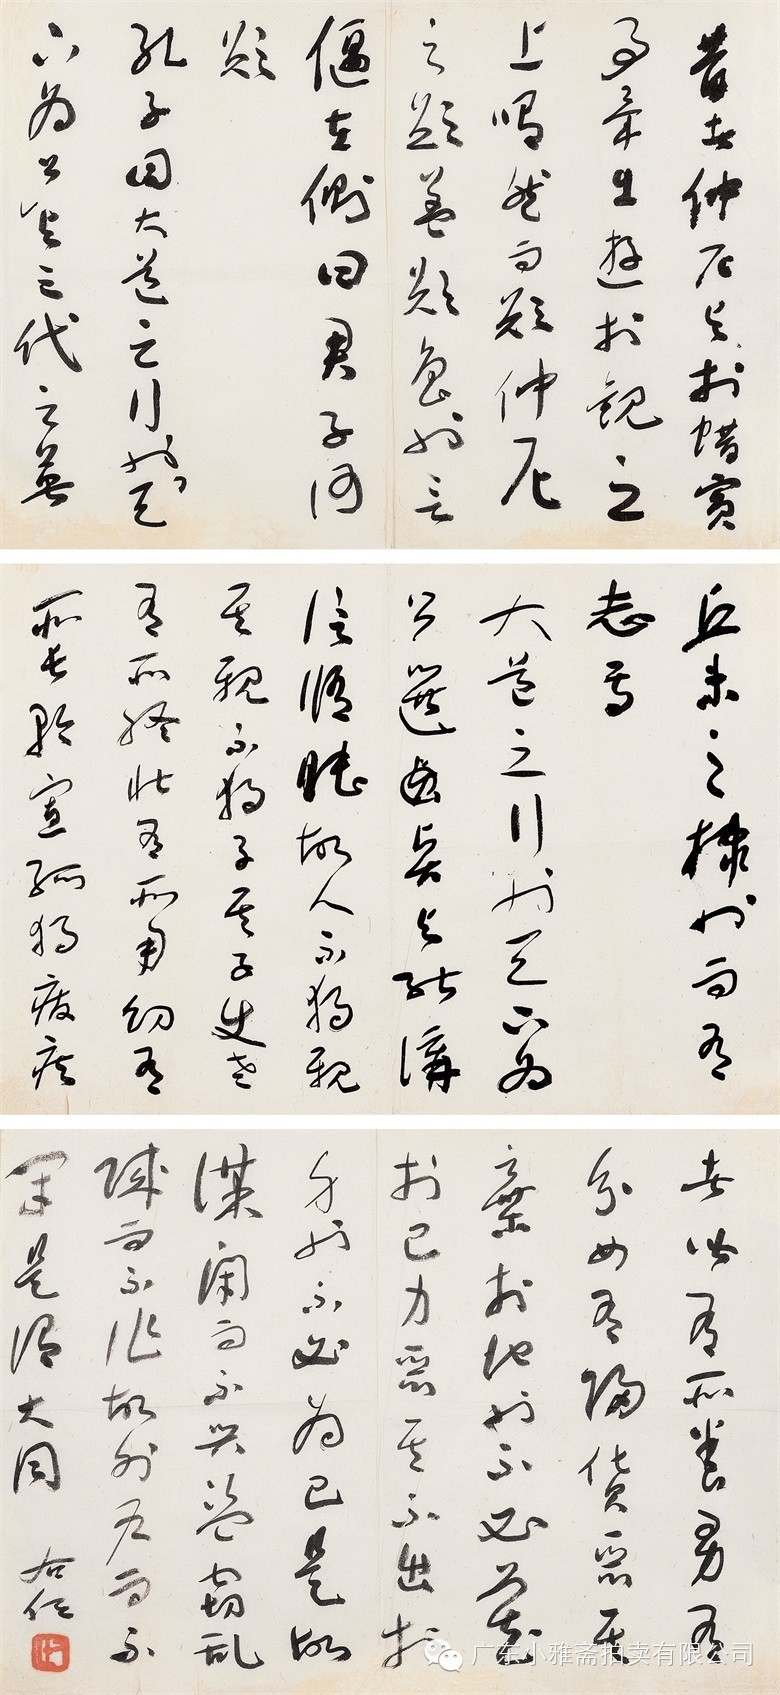 昔者仲尼与於蜡賓
事畢出遊於觀之
上喟然而歎仲尼
之歎蓋歎魯也言
偃在側曰君子何
歎
孔子曰大道之行也天
下為公与三代之英
丘未之逮也而有
志焉
大道之行也天下為
公選賢与能講
信脩睦故人不獨親
其親不獨子其子使老
有所終壯有所用幼有
所長矜寡孤獨廢疾
者皆有所養男有
分女有歸貨惡其
棄於地也不必藏
於己力惡其不出於
身也不必為己是故
謀閉而不興盜竊亂
賊而不作故外户而不
閉是謂大同 右任
广东小雅斋拍卖有限公司